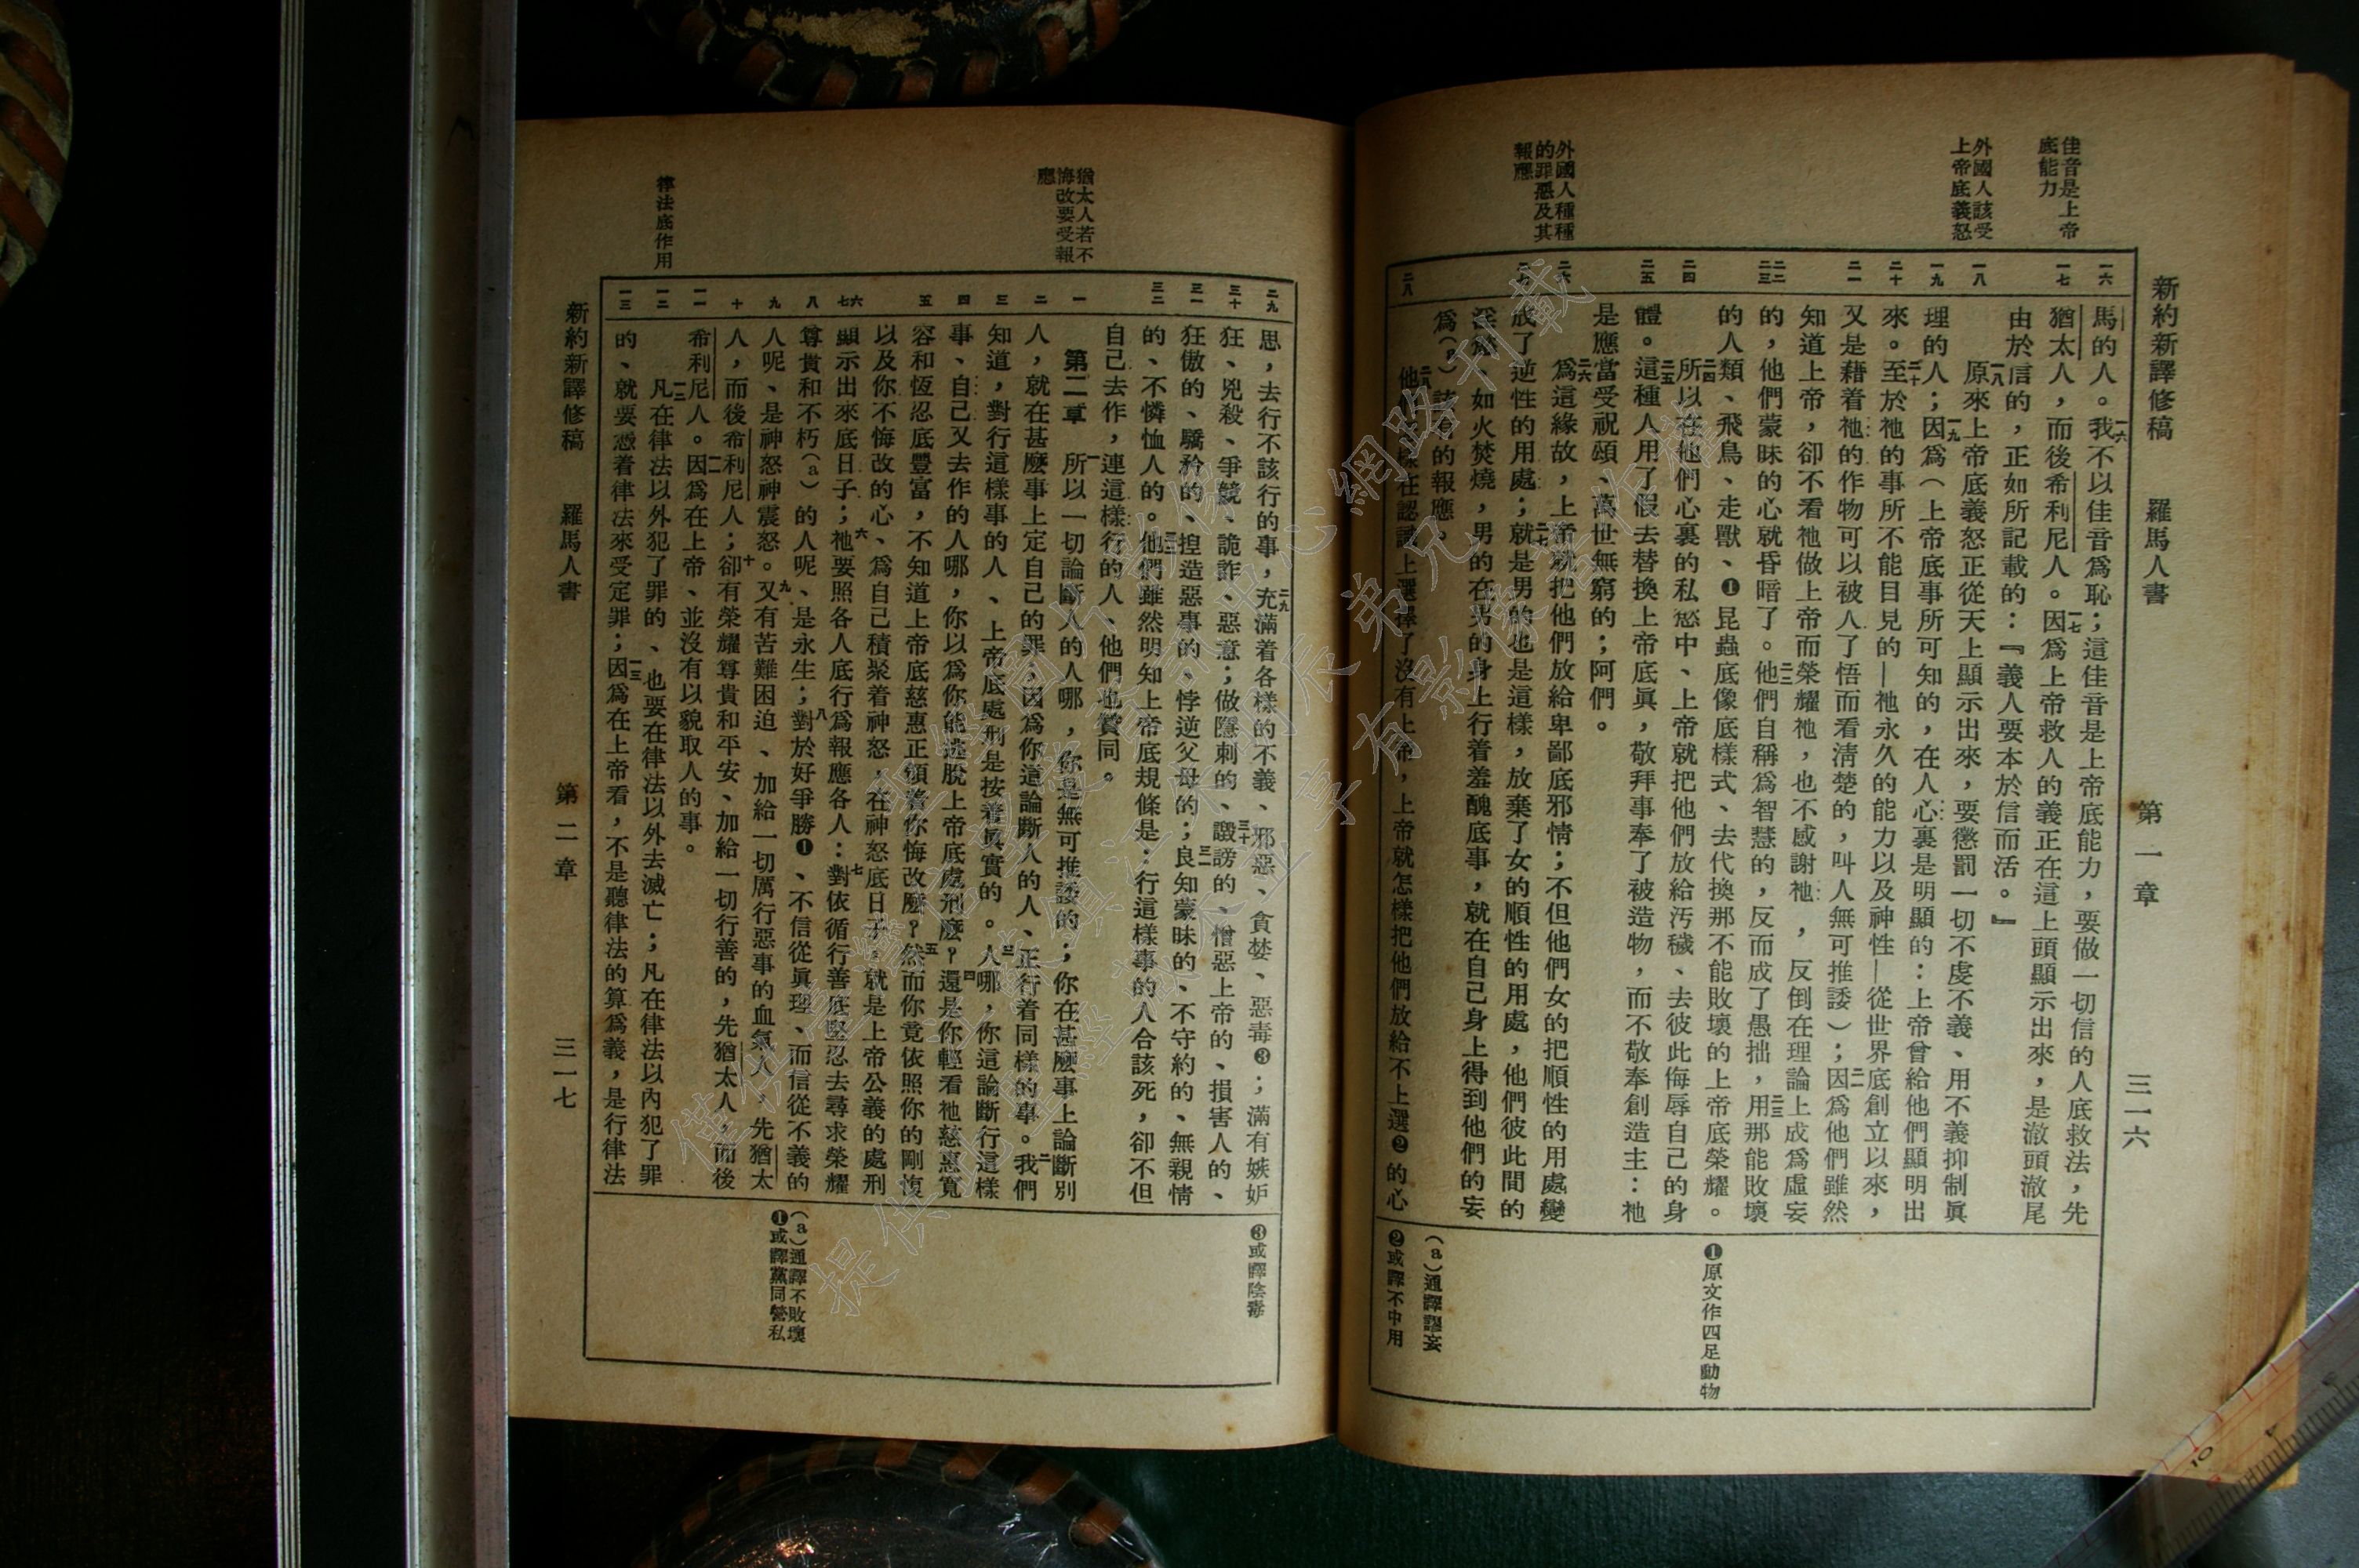 新約新譯修稿　羅馬人書　第一章　三一六
佳音是上帝
底能力
外國人該受
上帝底義怒
外國人種種
的罪惡及其
報應
一六
一七
一八
一九
二十
二一
二二
二三
二四
二五
二六
二七
二八
馬的人。一六我不以佳音爲恥；這佳音是上帝底能力，要做一切信的人底救法，先
猶太人，而後希利尼人。一七因爲上帝救人的義正在這上頭顯示出來，是澈頭澈尾
由於信的，正如所記載的：『義人要本於信而活。』
一八原來上帝底義怒正從天上顯示出來，要懲罰一切不虔不義、用不義抑制眞
理的人；一九因爲（上帝底事所可知的，在人心裏是明顯的：上帝曾給他們顯明出
來。二十至於祂的事所不能目見的—祂永久的能力以及神性—從世界底創立以來，
又是藉着祂的作物可以被人了悟而看淸楚的，叫人無可推諉）；二一因爲他們雖然
知道上帝，卻不看祂做上帝而榮耀祂，也不感謝祂，反倒在理論上成爲虛妄
的，他們蒙昧的心就昏暗了。二二他們自稱爲智慧的，反而成了愚拙，二三用那能敗壞
的人類、飛鳥、走獸、❶昆蟲底像底樣式、去代換那不能敗壞的上帝底榮耀。
二四所以在他們心裏的私慾中、上帝就把他們放給汚穢、去彼此侮辱自己的身
體。二五這種人用了假去替換上帝底眞，敬拜事奉了被造物，而不敬奉創造主：祂
是應當受祝頌、萬世無窮的；阿們。
二六爲這緣故，上帝就把他們放給卑鄙底邪情；不但他們女的把順性的用處變
成了逆性的用處；二七就是男的也是這樣，放棄了女的順性的用處，他們彼此間的
淫慾、如火焚燒，男的在男的身上行着羞醜底事，就在自己身上得到他們的妄
爲（a）該得的報應。
二八他們怎樣在認識上選擇了沒有上帝，上帝就怎樣把他們放給不上選❷的心
❶原文作四足動物
（a）通譯謬妄
❷或譯不中用
猶太人若不
悔改要受報
應
律法底作用
二九
三十
三一
三二
一
二
三
四
五
六
七
八
九
十
一一
一二
一三
思，去行不該行的事，二九充滿着各樣的不義、邪惡、貪婪、惡毒❸；滿有嫉妒
狂、兇殺、爭競、詭詐、惡意；做隱刺的、三十譭謗的、憎惡上帝的、損害人的、
狂傲的、驕矜的、揑造惡事的、悖逆父母的；三一良知蒙昧的、不守約的、無親情
的、不憐恤人的。三二他們雖然明知上帝底規條是：行這樣事的人合該死，卻不但
自己去作，連這樣行的人、他們也贊同。
第二章　一所以一切論斷人的人哪，你是無可推諉的；你在甚麼事上論斷別
人，就在甚麼事上定自己的罪；因爲你這論斷人的人、正行着同樣的事。二我們
知道，對行這樣事的人、上帝底處刑是按着眞實的。三人哪，你這論斷行這樣
事、自己又去作的人哪，你以爲你能逃脫上帝底處刑麼？四還是你輕看祂慈惠寬
容和恆忍底豐富，不知道上帝底慈惠正領着你悔改麼？五然而你竟依照你的剛愎
以及你不悔改的心、爲自己積聚着神怒，在神怒底日子，就是上帝公義的處刑
顯示出來底日子；六祂要照各人底行爲報應各人：七對依循行善底堅忍去尋求榮耀
尊貴和不朽（a）的人呢、是永生；八對於好爭勝❶、不信從眞理、而信從不義的
人呢、是神怒神震怒。九又有苦難困迫、加給一切厲行惡事的血氣人，先猶太
人，而後希利尼人；十卻有榮耀尊貴和平安、加給一切行善的，先猶太人，而後
希利尼人。一一因爲在上帝、並沒有以貌取人的事。
一二凡在律法以外犯了罪的、也要在律法以外去滅亡；凡在律法以內犯了罪
的、就要憑着律法來受定罪；一三因爲在上帝看，不是聽律法的算爲義，是行律法
❸或譯陰毒
（a）通譯不敗壞
❶或譯黨同營私
新約新譯修稿　羅馬人書　第二章　三一七